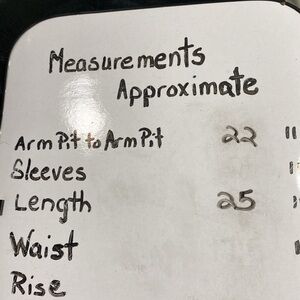 Measurements
Approximate
Arm Pit to Arm Pit 22 "
Sleeves "
Length 25 "
Waist "
Rise